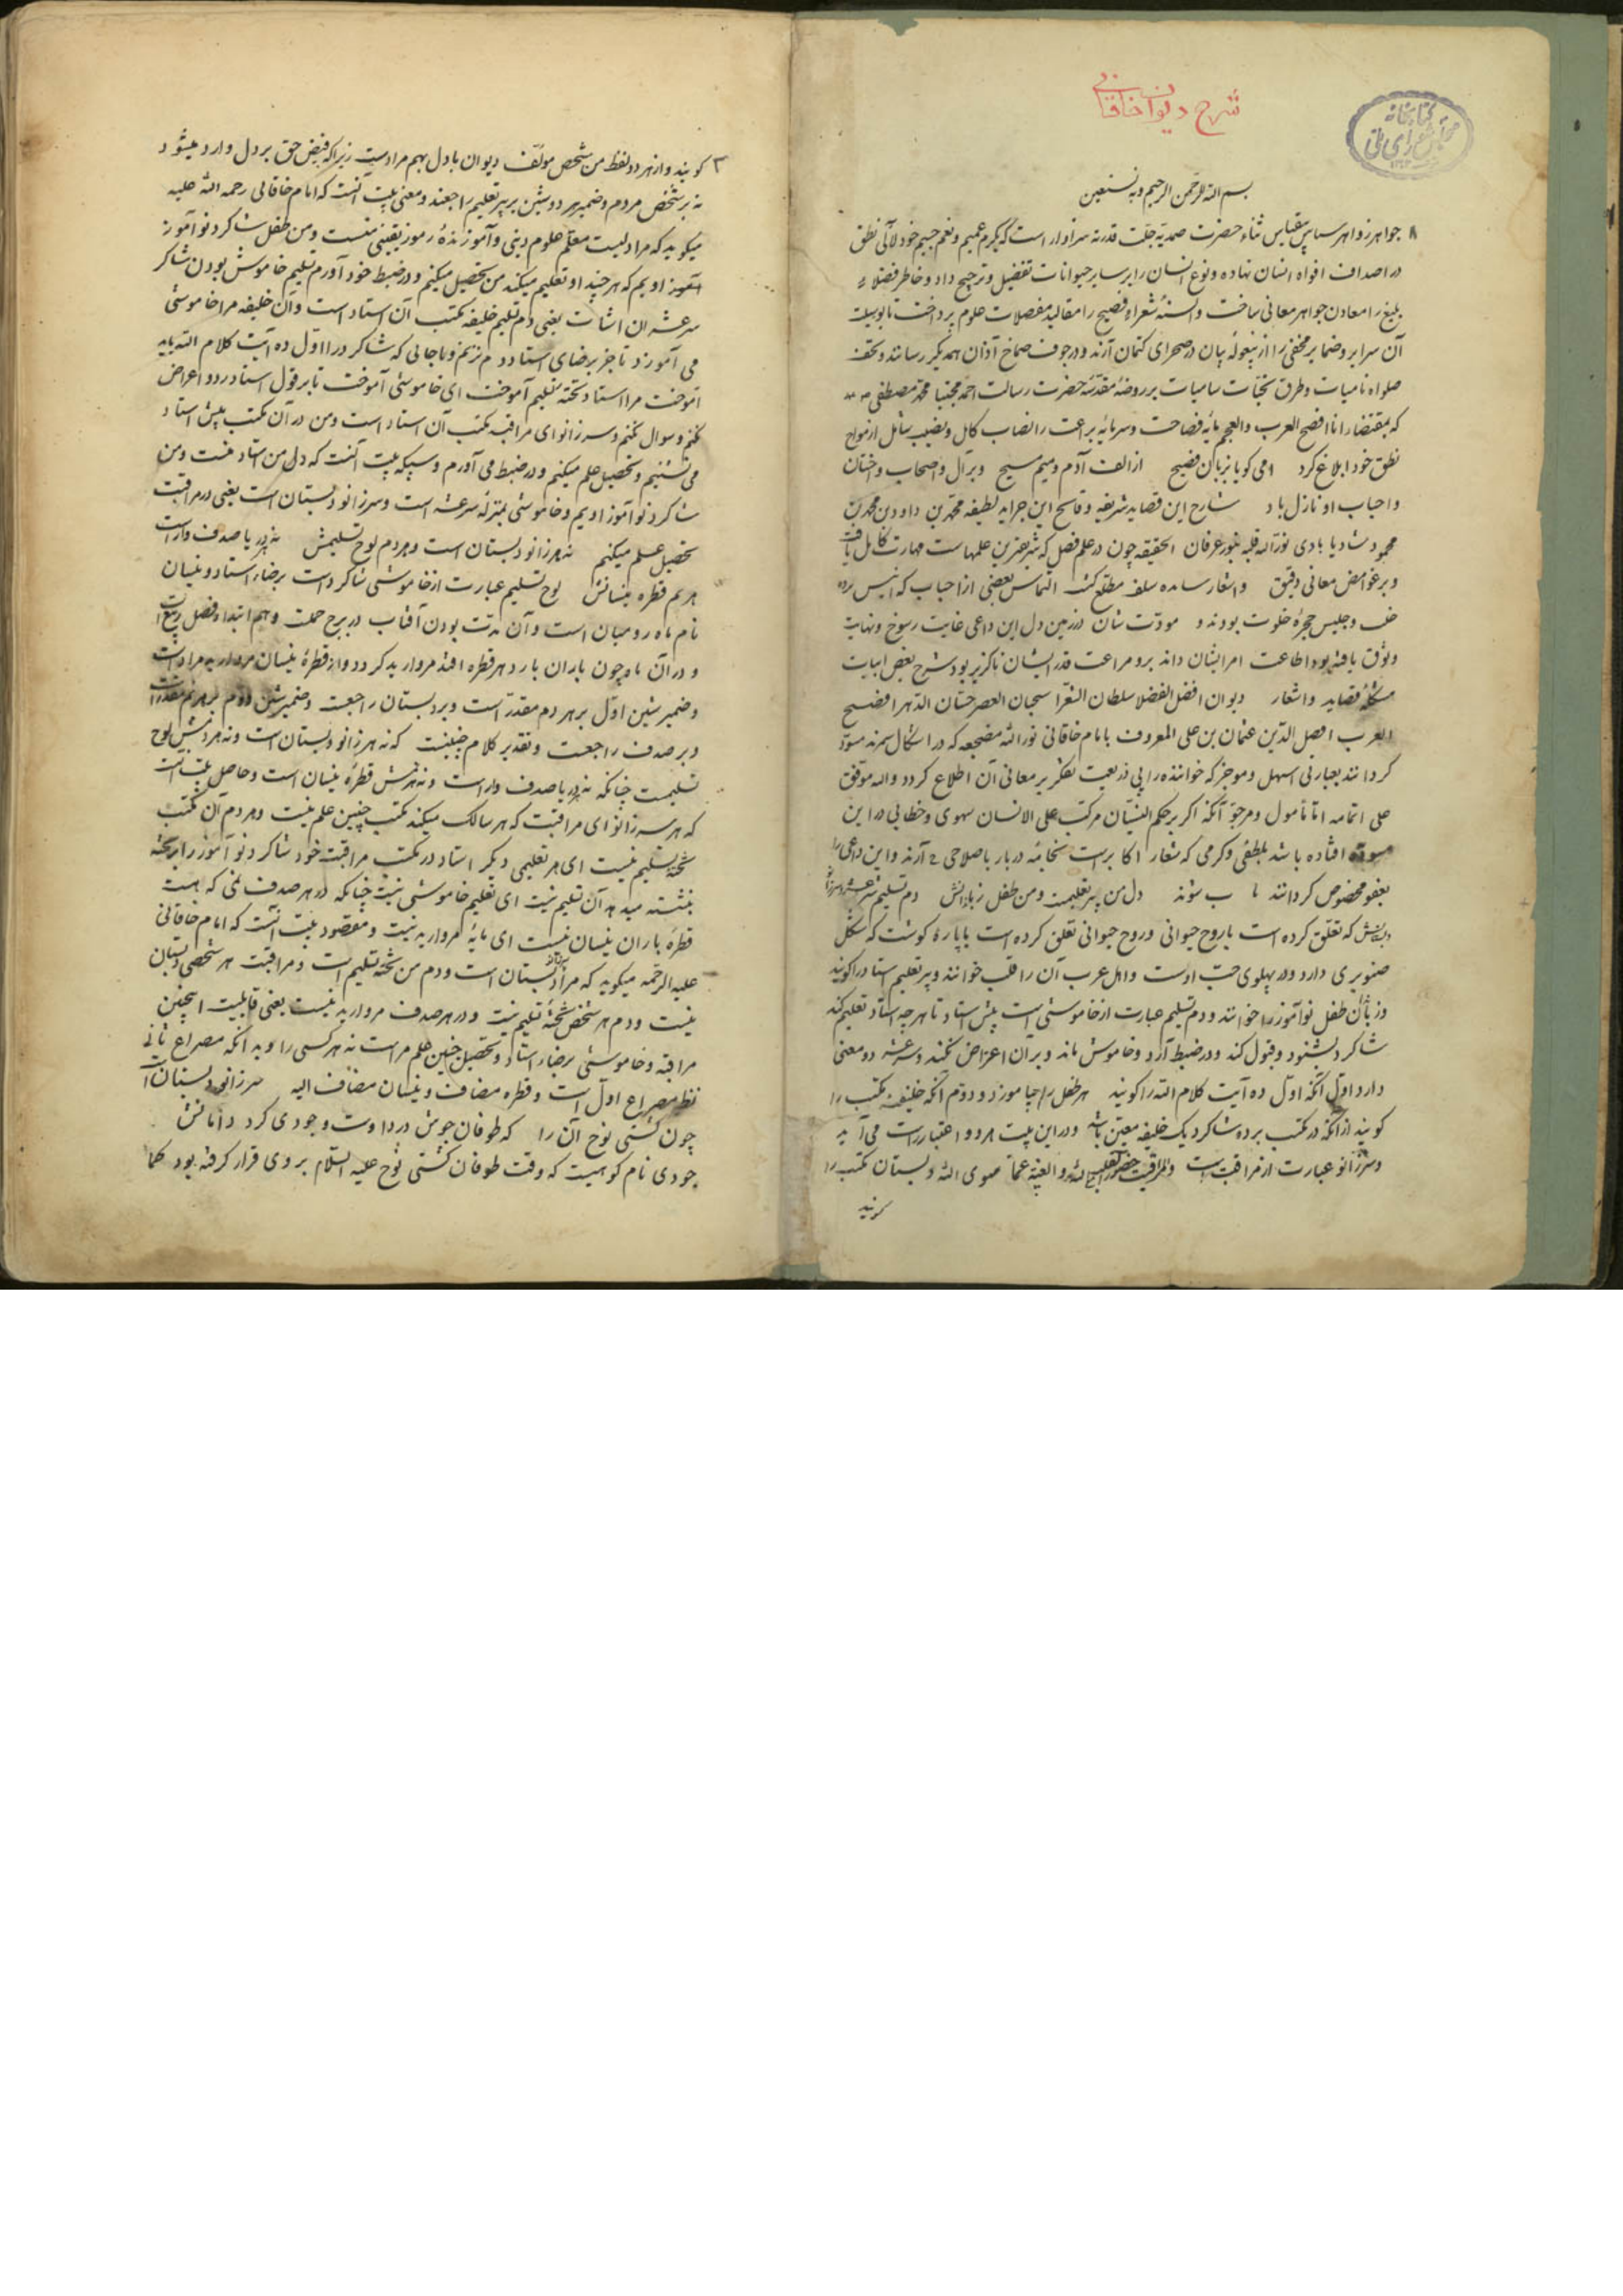 شرح دیوان خاقانی
کتابخانه
مجلس شورای ملی
بسم الله الرحمن الرحیم وبه نستعین
جواهر زواهر سپاس بیقیاس ثناء حضرت صمدیة جلت قدرته سزاوار است که بکرم عمیم و نعم جسیم خود لآلی نطق
در اصداف افواه انسان نهاده و نوع انسان را بر سایر حیوانات تفضیل و ترجیح داد و خاطر فضلاء
بلیغ را معادن جواهر معانی ساخت و السنهٔ شعراء فصیح را مقالید مفصلات علوم پرداخت تا بوسیلت
آن سرایر و ضمایر مخفی را از بیغولهٔ بیان در صحرای کتمان آرند و در جوف صماخ آذان همدیگر رسانند و تحف
صلواة نامیات و طرف تحیات سامیات بر روضهٔ مقدسهٔ حضرت رسالت احمد مجتبا محمد مصطفی
که بمقتضاء انا افصح العرب والعجم مایهٔ فصاحت و سرمایهٔ براعت را نصاب کامل و نصیب شامل از مواید
نطق خود ابلاغ کرد امی کویا بزبان فصیح از الف آدم و میم مسیح و بر آل و اصحاب و اختان
و احباب او نازل باد شارح این قصاید شریفه و فاتح این جراید لطیفه محمد بن داود بن محمد بن
محمود شادیابادی نور الله قلبه بنور عرفان الحقیقه چون در علم فصل که شریفترین علمهاست مهارت کامل یافت
و بر غوامض معانی دقیق و اشعار سلف مطلع کشت التماس بعضی از احباب که انیس
و جلیس حجرهٔ خلوت بودند و مودت شان در زمین دل این داعی غایت رسوخ و نهایت
وثوق یافته بود اطاعت امر ایشان داند برو مراعت قدر ایشان ناکزیر بود شرح بعض ابیات
مشکلهٔ قصاید و اشعار دیوان افضل الفضلا سلطان الشعرا سحبان العصر حسان الدهر افصح
العرب افضل الدین عثمان بن علی المعروف بامام خاقانی نور الله مضجعه که در اشکال
کردانند بعبارتی اسهل و موجز که خواننده را بی ذریعت تفکر بر معانی آن اطلاع کردد والله موفق
علی اتمامه اما مأمول و مرجو آنکه اکر بر حکم النسیان مرکب علی الانسان سهوی و خطایی در این
مسوده افتاده باشد بلطفی و کرمی که شعار اکابر است باصلاحی آرند و این داعی را
بعفو مخصوص کردانند دل من پیر تعلیمست و من طفل زباندانش دم تسلیم سرعشر و سر زانو
دبستانش که تعلق کرده است با روح حیوانی و روح حیوانی تعلق کرده است با پارهٔ کوشت که شکل
صنوبری دارد و در پهلوی چپ اوست و اهل عرب آن را قلب خوانند و پیر تعلیم استاد را کویند
و زبان طفل نوآموز را خوانند و دم تسلیم عبارت از خاموشی است پیش استاد تا هر چه استاد تعلیم کند
شاکرد بشنود و قبول کند و در ضبط آرد و خاموش ماند و بر آن اعتراض نکند و سرعشر دو معنی
دارد اول آنکه اول ده آیت کلام الله را کویند هر طفل را می آموزد و دوم آنکه خلیفهٔ مکتب را
کویند از آنکه در مکتب بر ده شاکرد یک خلیفه معین باشد و در این بیت هر دو اعتبار راست می آید
و سر زانو عبارت از مراقبت است والمراقبت حضور القلب مع الله والغیبة عما سوی الله و دبستان مکتب را
کویند
کویند و از هر دو لفظ من شخص مؤلف دیوان با دل بهم مراد است زیرا که فیض حق بر دل وارد میشود
نه بر شخص مردم و ضمیر هر دو شین بر پیر تعلیم راجعند و معنی بیت آنست که امام خاقانی رحمه الله علیه
میکوید که مرا دلیست معلم علوم دینی و آموزندهٔ رموز یقینی منست و من طفل شاکرد نوآموز
آموز اویم که هر چیند او تعلیم میکند من تحصیل میکنم و در ضبط خود آورم تسلیم خاموش بودن شاکر
سرعشر آن استاد است یعنی دم تسلیم خلیفه مکتب آن استاد است و آن خلیفه مرا خاموشی
می آموزد تا جز برضای استاد دم نزنم و بجایی که شاکرد را اول ده آیت کلام الله باید
آموخت مرا استاد تختهٔ تسلیم آموخت ای خاموشی آموخت تا بر قول استاد رد و اعراض
نکنم و سوال نکنم و سر زانو ای مراقبه مکتب آن استاد است و من در آن مکتب پیش استاد
می نشینم و تحصیل علم میکنم و در ضبط می آورم و سبکه بیت آنست که دل من استاد منست و من
شاکرد نوآموز اویم و خاموشی بمنزلهٔ سرعشر است و سر زانو دبستان است یعنی در مراقبت
تحصیل علم میکنم نه هر زانو دبستان است و هر دم لوح تسلیمش نه هر دریا صدف دارست
هر نم قطرهٔ نیسانش لوح تسلیم عبارت از خاموشی شاکرد است برضاء استاد و نیسان
نام ماه رومیان است و آن مدت بودن آفتاب در برج حملست و هم ابتداء فصل ربیع است
و در آن ماه چون باران بارد هر قطره افتد مروارید کردد و از قطرهٔ نیسان مروارید مراد است
و ضمیر شین اول بر هر دم مقدر است و بر دبستان راجعست و ضمیر شین دوم بر هر نم مقدر است
و بر صدف راجعست و تقدیر کلام چنینست که نه هر زانو دبستان است و نه هر دمش لوح
تسلیمست چنانکه نه هر دریا صدف دار است و نه هر نمش قطرهٔ نیسان است و حاصل بیت آنست
که هر سر زانو ای مراقبت که هر سالک میکند مکتب چنین علم نیست و هر دم آن مکتب
تختهٔ تسلیم نیست ای هر تعلیمی دیکر استاد در مکتب مراقبت خود شاکرد نوآموز را بر تخته
نبشته میدهد آن تسلیم نیست ای تعلیم خاموشی نیست چنانکه در هر صدف نمی که هست
قطرهٔ باران نیسان نیست ای مایهٔ مروارید نیست و مقصود بیت آنست که امام خاقانی
علیه الرحمه میکوید که مرا زانو دبستان است و دم من تختهٔ تسلیم است و مراقبت هر شخصی دبستان
نیست و دم هر شخص تختهٔ تسلیم نیست و در هر صدف مروارید نیست یعنی قابلیت اینچنین
مراقبه و خاموشی برضاء استاد و تحصیل چنین علم مراست نه هر کسی را و بد آنکه مصراع ثانی
نظیر مصراع اول است و قطره مضاف و نیسان مضاف الیه سر زانو دبستان است
چون کشتی نوح آن را که طوفان جوش درد اوست و جودی کرد دامانش
جودی نام کوهیست که وقت طوفان کشتی نوح علیه السلام بر وی قرار کرفته بود کما